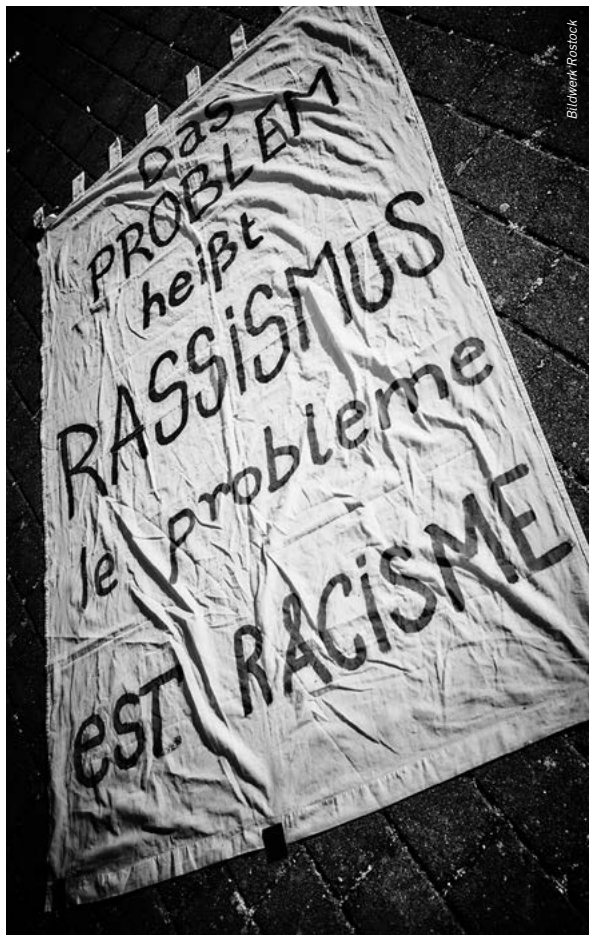 Das
PROBLEM
heißt
RASSiSMUS
le probleme
esT RACiSME
Bildwerk Rostock